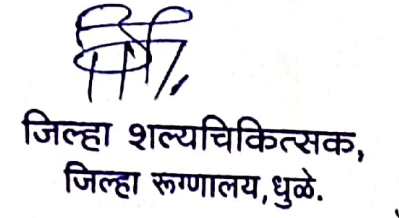 जिल्हा शल्यचिकित्सक,
जिल्हा रूग्णालय,धुळे.